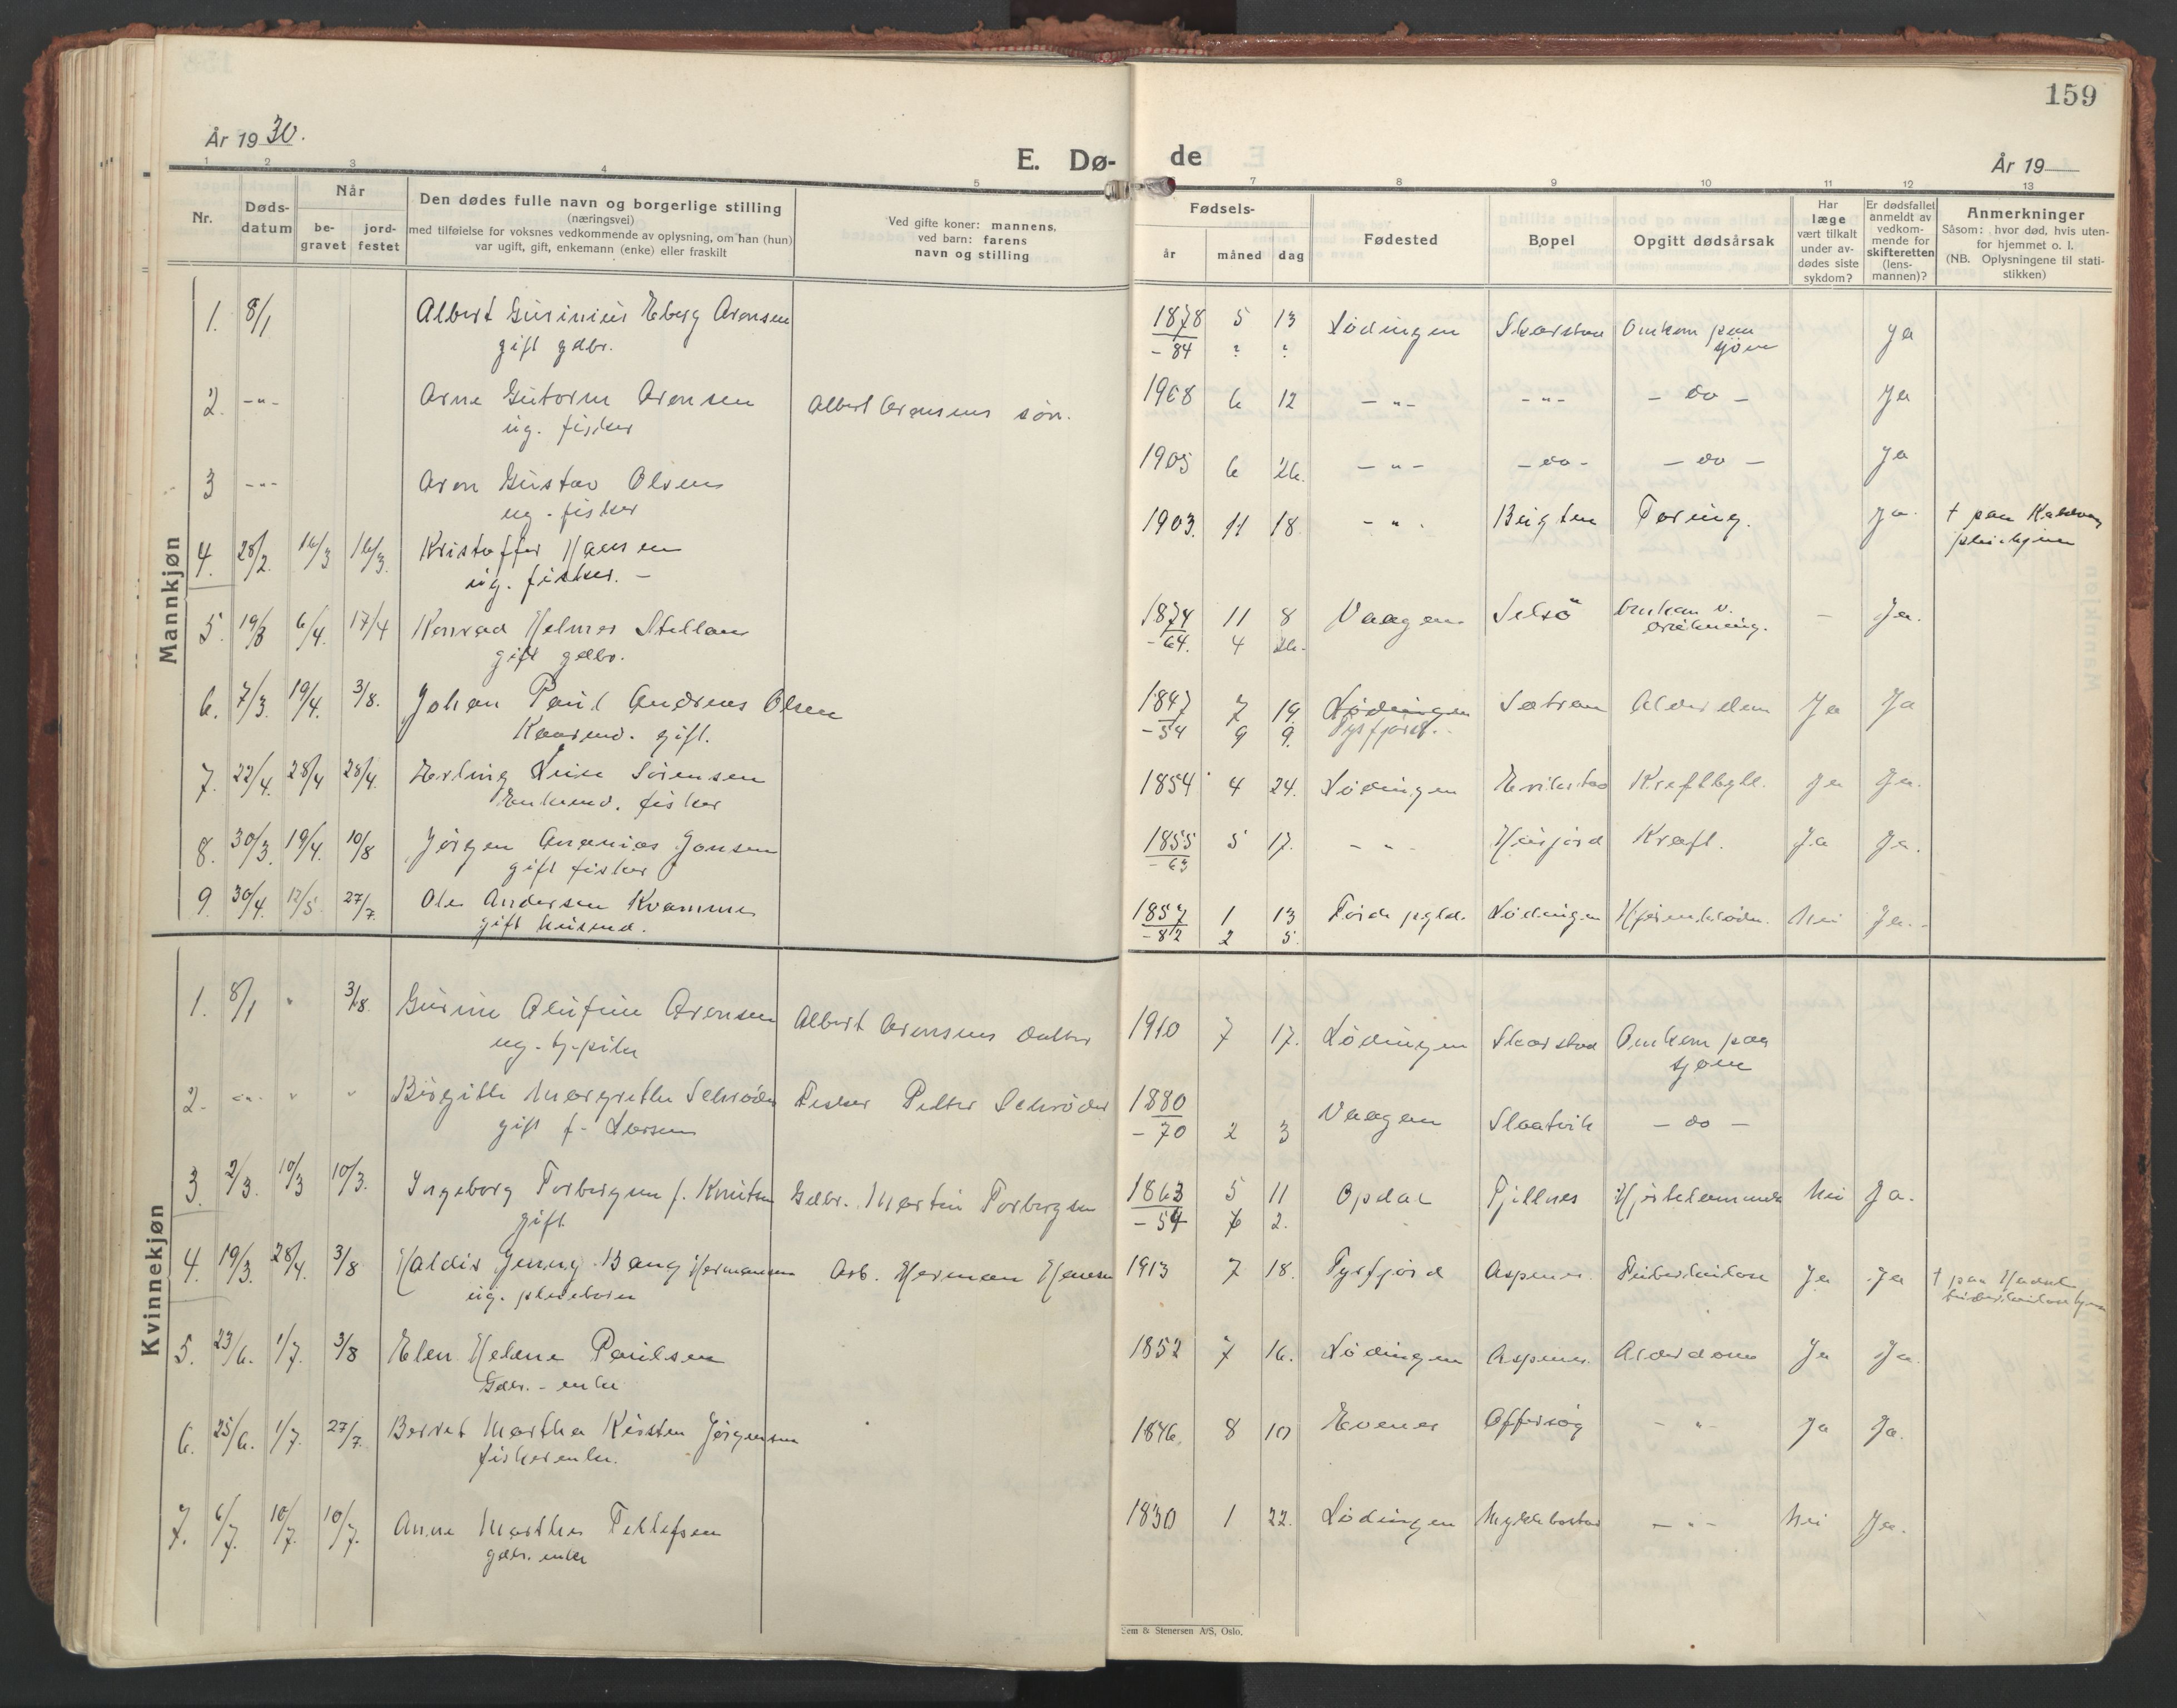 159
År 1930.
E. Dø-de
År 19
1 2 3 4 5 7 8 9 10 11 12 13
Nr.
Døds-
datum
Når
be-
gravet
jord-
festet
Den dødes fulle navn og borgerlige stilling
(næringsvei)
med tilføielse for voksnes vedkommende av oplysning, om han (hun)
var ugift, gift, enkemann (enke) eller fraskilt
Ved gifte koner: mannens,
ved barn: farens
navn og stilling
Fødsels-
år måned dag
Fødested
Bopel
Opgitt dødsårsak
Har
læge
vært tilkalt
under av-
dødes siste
sykdom?
Er dødsfallet
anmeldt av
vedkom-
mende for
skifteretten
(lens-
mannen)?
Anmerkninger
Såsom: hvor død, hvis uten-
for hjemmet o. l.
(NB. Oplysningene til stati-
stikken)
Mannkjøn
1. 8/1 Albert Gurinius Eberg Aronsen 1878 5 13 Lødingen Skarstad Omkom paa ja
gift gdbr. - 84 ? ? sjøen
2. -"- Arne Gutorm Aronsen Albert Aronsens søn. 1908 6 12 -"- -"- - do - ja
ug. fisker
3 -"- Aron Gustav Olsen 1905 6 26. -"- - do - - do - ja
ug. fisker
4. 28/2. 16/3 16/3. Kristoffer Hansen 1903. 11 18. -"- Tæring. ja. † paa
ug. fisker. -
5. 19/3 6/4. 17/4 Konrad Helmer 1874 11 8 Vaagan Selsø Omkom v. - Ja.
gift gdbr. - 64. 4 26. drukning.
6. 7/3. 19/4. 3/8. Johan Paul Andreas Olsen 1847 7 19. Lødingen Sætran Alderdom Ja Ja
Kaarmd. gift. - 54 9 9. Tysfjord.
7. 22/4. 28/4 28/4. Erling Sørensen 1854 4 24. Lødingen Erikstad Kreftbyll. ja Ja.
Enkemd. fisker
8. 30/3. 19/4. 10/8 Jørgen Ananias Jonsen 1855 5 17. -"- Kræft. Ja Ja.
gift fisker - 63
9. 30/4. 12/5 27/7. Ole Andersen Kvamme 1857 1 13 Førde pgld. Lødingen Nei Ja.
gift husmd. - 82 2 5.
Kvinnekjøn
1. 8/1 " 3/8. Gurine Olufine Aronsen Albert Aronsens datter 1910 7 17. Lødingen Skarstad Omkom paa
ug. sjøen
2. -"- " " Birgitte Margrethe Schrøder Fisker Petter Schrøder 1880 Vaagan Slaatvik - do -
gift f. Larsen - 70 2 3
3. 2/3. 10/3 10/3. Ingeborg Torbergsen f. Knutsen Gdbr. Martin Torbergsen 1863 5 11 Opdal Fjellnes Hjertelammelse Nei Ja.
gift - 54 6 2.
4. 19/3. 28/4. 3/8 Haldis Jenny Bang Hermansen Arb. Herman Hansen 1913 7 18. Tysfjord Aspenes Tuberkulose Ja Ja † paa
ug. pleiebarn
5. 23/6. 1/7. 3/8 Elen Helene Paulsen 1852 7 16. Lødingen Aspenes Alderdom Ja Ja.
Gdbr. - enke
6. 25/6. 1/7. 27/7. Berret Martha Kirsten Jørgensen 1846. 8 10 Evenes Offersøy -"- Ja Ja.
fiskerenke.
7. 6/7. 10/7. 10/7. Anne Marthe Tellefsen 1830 1 22. Lødingen Myklebostad -"- Nei Ja.
gdbr. enke
Sem & Stenersen A/S, Oslo.